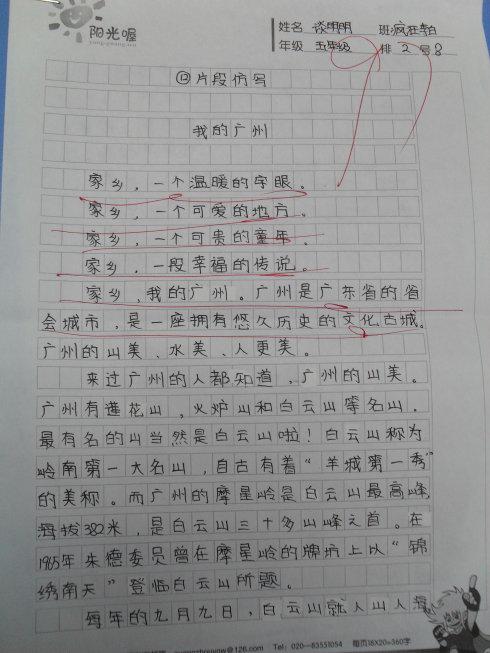 阳光喔
yang guang wo
姓名 谈明明 班 疯狂转白
年级 五年级 排 2 号 8
⑫片段仿写
我的广州
家乡,一个温暖的字眼。
家乡,一个可爱的地方。
家乡,一个可贵的童年。
家乡,一段幸福的传说。
家乡,我的广州。广州是广东省的省
会城市,是一座拥有悠久历史的文化古城。
广州的山美、水美、人更美。
来过广州的人都知道,广州的山美。
广州有莲花山,火炉山和白云山等名山。
最有名的山当然是白云山啦!白云山称为
岭南第一大名山,自古有着“羊城第一秀”
的美称。而广州的摩星岭是白云山最高峰,
海拔382米,是白云山三十多山峰之首。在
1965年朱德委员曾在摩星岭的牌坊上以“锦
绣南天”登临白云山所题。
每年的九月九日,白云山就人山人海
@126.com TEL:020-83551054 每页18X20=360字